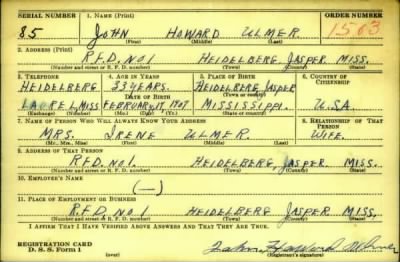 SERIAL NUMBER 1. NAME (Print) ORDER NUMBER
85 JOHN HOWARD ULMER 1583
(First) (Middle) (Last)
2. ADDRESS (Print)
R.F.D. NO 1 HEIDELBERG, JASPER MISS.
(Number and street or R. F. D. number) (Town) (County) (State)
3. TELEPHONE 4. AGE IN YEARS 5. PLACE OF BIRTH 6. COUNTRY OF CITIZENSHIP
HEIDELBERG 33 YEARS. HEIDELBERG, JASPER
DATE OF BIRTH (Town or county)
LAUREL, MISS FEBRUARY, 17, 1907 MISSISSIPPI. U.S.A
(Exchange) (Number) (Mo.) (Day) (Yr.) (State or country)
7. NAME OF PERSON WHO WILL ALWAYS KNOW YOUR ADDRESS 8. RELATIONSHIP OF THAT PERSON
MRS. IRENE ULMER WIFE.
(Mr., Mrs., Miss) (First) (Middle) (Last)
9. ADDRESS OF THAT PERSON
R.F.D. NO 1. HEIDELBERG, JASPER MISS.
(Number and street or R. F. D. number) (Town) (County) (State)
10. EMPLOYER'S NAME
(—)
11. PLACE OF EMPLOYMENT OR BUSINESS
R.F.D. NO 1 HEIDELBERG JASPER MISS.
(Number and street or R. F. D. number) (Town) (County) (State)
I AFFIRM THAT I HAVE VERIFIED ABOVE ANSWERS AND THAT THEY ARE TRUE.
REGISTRATION CARD
D. S. S. Form 1 (over) John Howard Ulmer
(Registrant's signature)